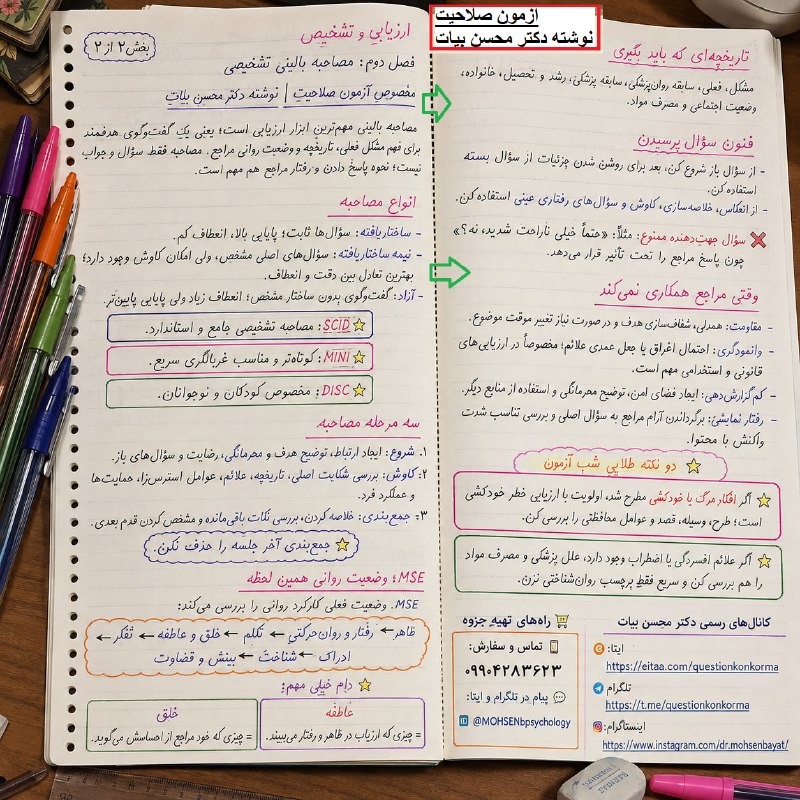 ازمون صلاحیت
نوشته دکتر محسن بیات
ارزیابی و تشخیص
بخش ۲ از ۲
فصل دوم: مصاحبه بالینی تشخیصی
مخصوص آزمون صلاحیت | نوشته دکتر محسن بیات
مصاحبه بالینی مهم‌ترین ابزار ارزیابی است؛ یعنی یک گفت‌وگوی هدفمند
برای فهم مشکل فعلی، تاریخچه و وضعیت روانی مراجع. مصاحبه فقط سؤال و جواب
نیست؛ نحوه پاسخ دادن و رفتار مراجع هم مهم است.
انواع مصاحبه
- ساختاریافته: سؤال‌ها ثابت؛ پایایی بالا، انعطاف کم.
- نیمه ساختاریافته: سؤال‌های اصلی مشخص، ولی امکان کاوش وجود دارد؛
بهترین تعادل بین دقت و انعطاف.
- آزاد: گفت‌وگوی بدون ساختار مشخص؛ انعطاف زیاد ولی پایایی پایین‌تر.
SCID: مصاحبه تشخیصی جامع و استاندارد.
MINI: کوتاه‌تر و مناسب غربالگری سریع.
DISC: مخصوص کودکان و نوجوانان.
سه مرحله مصاحبه
۱. شروع: ایجاد ارتباط، توضیح هدف و محرمانگی، رضایت و سؤال‌های باز.
۲. کاوش: بررسی شکایت اصلی، تاریخچه، علائم، عوامل استرس‌زا، حمایت‌ها
و عملکرد فرد.
۳. جمع‌بندی: خلاصه کردن، بررسی نکات باقی‌مانده و مشخص کردن قدم بعدی.
جمع‌بندی آخر جلسه را حذف نکن.
MSE؛ وضعیت روانی همین لحظه
MSE. وضعیت فعلی کارکرد روانی را بررسی می‌کند:
ظاهر ← رفتار و روان‌حرکتی ← تکلم ← خلق و عاطفه ← تفکر ←
ادراک ← شناخت ← بینش و قضاوت
دام خیلی مهم:
عاطفه
= چیزی که ارزیاب در ظاهر و رفتار می‌بیند.
خلق
= چیزی که خود مراجع از احساسش می‌گوید.
تاریخچه‌ای که باید بگیری
مشکل، فعلی، سابقه روان‌پزشکی، سابقه پزشکی، رشد و تحصیل، خانواده،
وضعیت اجتماعی و مصرف مواد.
فنون سؤال پرسیدن
- از سؤال باز شروع کن، بعد برای روشن شدن جزئیات از سؤال بسته
استفاده کن.
- از انعکاس، خلاصه‌سازی، کاوش و سؤال‌های رفتاری عینی استفاده کن.
❌ سؤال جهت‌دهنده ممنوع: مثلاً: «حتماً خیلی ناراحت شدید، نه؟»
چون پاسخ مراجع را تحت تأثیر قرار می‌دهد.
وقتی مراجع همکاری نمی‌کند
- مقاومت: همدلی، شفاف‌سازی هدف و در صورت نیاز تغییر موقت موضوع.
- وانمودگری: احتمال اغراق یا جعل عمدی علائم؛ مخصوصاً در ارزیابی‌های
قانونی و استخدامی مهم است.
- کم‌گزارش‌دهی: ایجاد فضای امن، توضیح محرمانگی و استفاده از منابع دیگر.
- رفتار نمایشی: برگرداندن آرام مراجع به سؤال اصلی و بررسی تناسب شدت
واکنش با محتوا.
دو نکته طلایی شب آزمون
اگر افکار مرگ یا خودکشی مطرح شد، اولویت با ارزیابی خطر خودکشی
است؛ طرح، وسیله، قصد و عوامل محافظتی را بررسی کن.
اگر علائم افسردگی یا اضطراب وجود دارد، علل پزشکی و مصرف مواد
را هم بررسی کن و سریع فقط برچسب روان‌شناختی نزن.
کانال‌های رسمی دکتر محسن بیات
ایتا:
https://eitaa.com/questionkonkorma
تلگرام
https://t.me/questionkonkorma
اینستاگرام:
https://www.instagram.com/dr.mohsenbayat/
راه‌های تهیه جزوه
تماس و سفارش:
۰۹۹۰۴۲۸۳۶۲۳
پیام در تلگرام و ایتا:
@MOHSENbpsychology